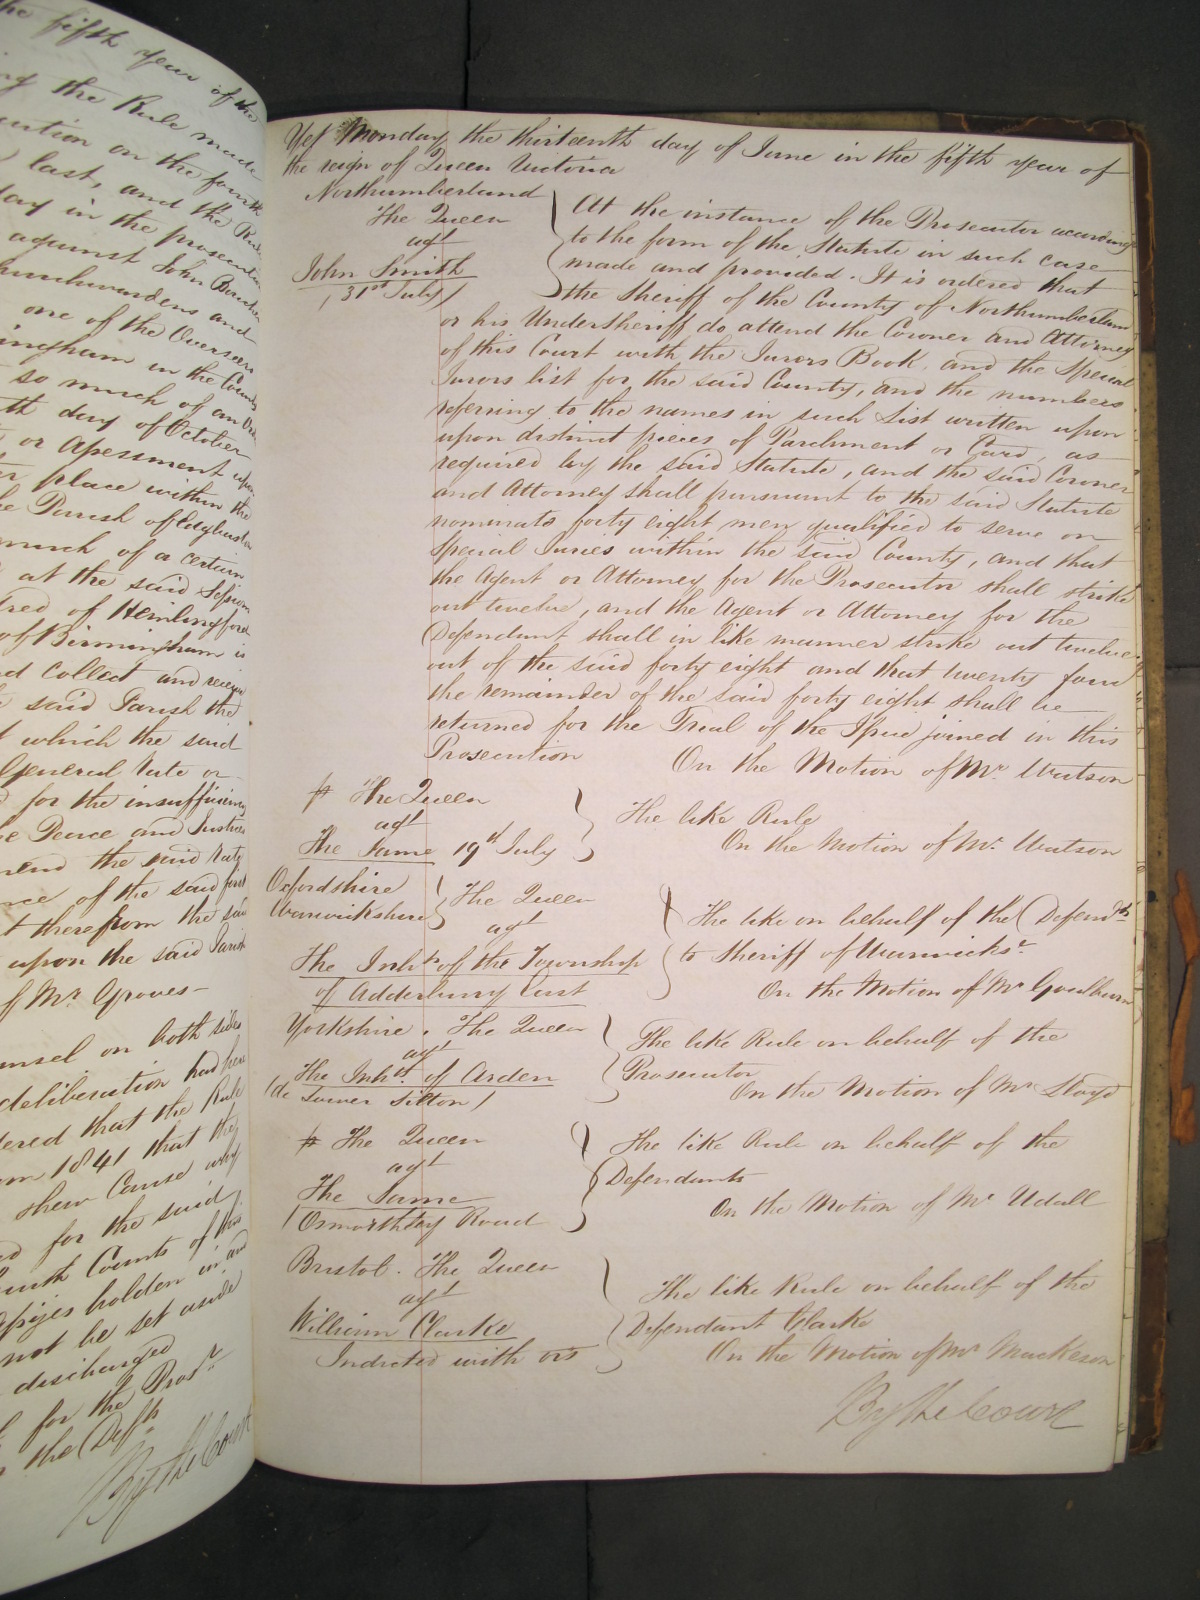 the fifth year of the
ng the Rule made
cution on the fourth
last, and the Rule
day in the prosecution
against John
hurchwardens and
one of the Overseers
ingham in the County
so much of an Order
th day of October
or Assessment upon
r place within the
e Parish of Edgbaston
much of a certain
at the said Session
red of Hemlingford
of Birmingham is
nd collect and receive
said Parish the
t which the said
General Rate or
for the insufficiency
he Peace and Justices
mend the said Rate
nce of the said first
t therefrom the said
upon the said Parish
f Mr. Groves
unsel on both sides
deliberation had here
dered that the Rule
m 1841 that the
shew Cause why
ed for the said
Counts of this
ssizes holden in and
not be set aside
discharged
for the Prosr.
the Defts
By the Court
Yet Monday the thirteenth day of June in the fifth year of
the reign of Queen Victoria
Northumberland
The Queen
agt
John Smith
(31st July)
At the instance of the Prosecutor according
to the form of the Statute in such case
made and provided. It is ordered that
the Sheriff of the County of Northumberland
or his Undersheriff do attend the Coroner and Attorney
of this Court with the Jurors Book, and the Special
Jurors list for the said County, and the numbers
referring to the names in such List written upon
upon distinct pieces of Parchment or Card, as
required by the said Statute, and the said Coroner
and Attorney shall pursuant to the said Statute
nominate forty eight men qualified to serve on
Special Juries within the said County, and that
the Agent or Attorney for the Prosecutor shall strike
out twelve, and the Agent or Attorney for the
Defendant shall in like manner strike out twelve
out of the said forty eight and that twenty four
the remainder of the said forty eight shall be
returned for the Trial of the Issue joined in this
Prosecution On the Motion of Mr. Watson
The Queen
agt
The Same 19th July
The like Rule
On the Motion of Mr. Watson
Oxfordshire
Warwickshire
The Queen
agt
The Inhts of the Township
of Adderbury East
The like on behalf of the Defendts
to Sheriff of Warwicks.
On the Motion of Mr Goulburn
Yorkshire. The Queen
agt
The Inhts. of Arden
(de Lower Silton)
The like Rule on behalf of the
Prosecutor
On the Motion of Mr Lloyd
The Queen
agt
The Same
(Osmotherley Road
The like Rule on behalf of the
Defendants
On the Motion of Mr Udall
Bristol. The Queen
agt
William Clarke
Indicted with ors
The like Rule on behalf of the
Defendant Clarke
On the Motion of Mr Mackeson
By the Court